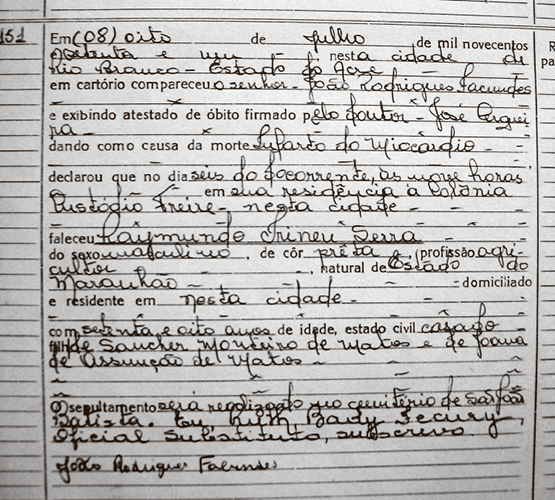 151 Em (08) oito de Julho de mil novecentos
e oitenta e um, nesta cidade de
Rio Branco - Estado do Acre
em cartório compareceu o senhor - João Rodrigues Facundes
e exibindo atestado de óbito firmado pelo doutor - José
dando como causa da morte Infarto do Miocárdio -
declarou que no dia seis do focorrente, às nove horas
em sua residência à Colônia
Custódio Freire - nesta cidade -
faleceu Raymundo Irineu Serra
do sexo masculino, de côr prêta, profissão agri-
cultor, natural de Estado do
Maranhão - domiciliado
e residente em nesta cidade -
com setenta e oito anos de idade, estado civil casado -
filho de Sancher Monteiro de Matos e de Joana
de Assunção de Matos -
O sepultamento será realizado no cemitério de São João
Batista. Eu, Ruth Bady Secury,
Oficial Substituto, subscrevo
João Rodrigues Facundes